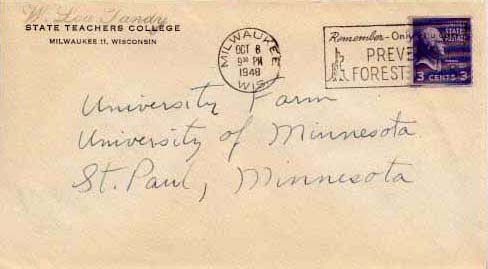 W. Lou Tandy
STATE TEACHERS COLLEGE
MILWAUKEE 11, WISCONSIN
MILWAUKEE
OCT 6
9 30 PM
1948
WIS.
Remember-Only
PREVE
FOREST
STATES
POSTAGE
3 CENTS 3
University Farm
University of Minnesota
St. Paul, Minnesota